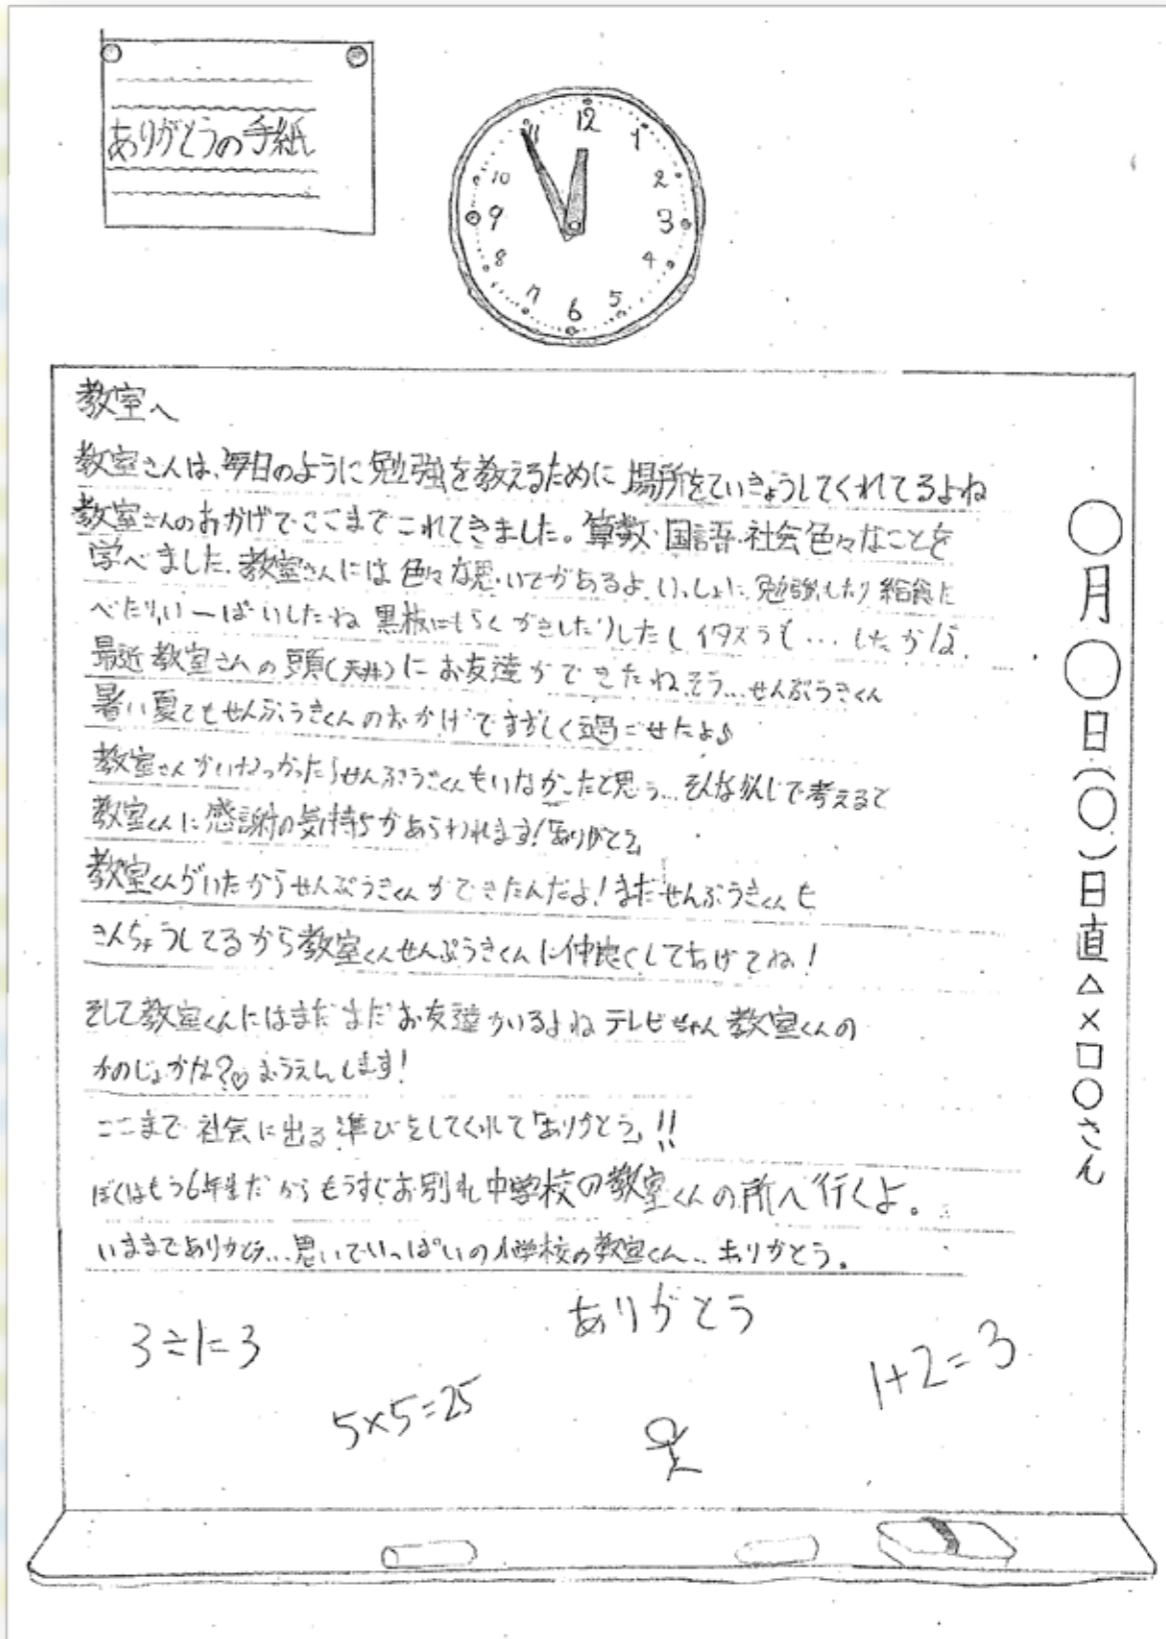 ありがとうの手紙
12
1
2
3
4
5
6
7
8
9
10
11
教室へ
教室さんは、毎日のように勉強を教えるために場所をていきょうしてくれてるよね
教室さんのおかげでここまでこれてきました。算数・国語・社会色々なことを
学べました。教室さんには色々な思いでがあるよ、いっしょに勉強したり給食た
べたりいーぱいしたね 黒板にらくがきしたりしたしイタズラも…したかな、
最近教室さんの頭(天井)にお友達ができたねそう…せんぷうきくん
暑い夏でもせんぷうきくんのおかげですずしく過ごせたよ♪
教室さんがいなっかったらせんぷうきくんもいなかったと思う…そんなかんじで考えると
教室くんに感謝の気持ちがあらわれます!「ありがとう」
教室くんがいたからせんぷうきくんができたんだよ!まだせんぷうきくんも
きんちょうしてるから教室くんせんぷうきくんに仲良くしてあげてね!
そして教室くんにはまだまだお友達がいるよねテレビちゃん教室くんの
かのじょかな?♡おうえんします!
ここまで社会に出る準びをしてくれて「ありがとう」!!
ぼくはもう6年生だからもうすぐお別れ中学校の教室くんの所へ行くよ。
いままでありがとう…思いでいっぱいの小学校の教室くん…ありがとう。
ありがとう
3÷1=3
5×5=25
1+2=3
○月○日(○)日直△×□○さん